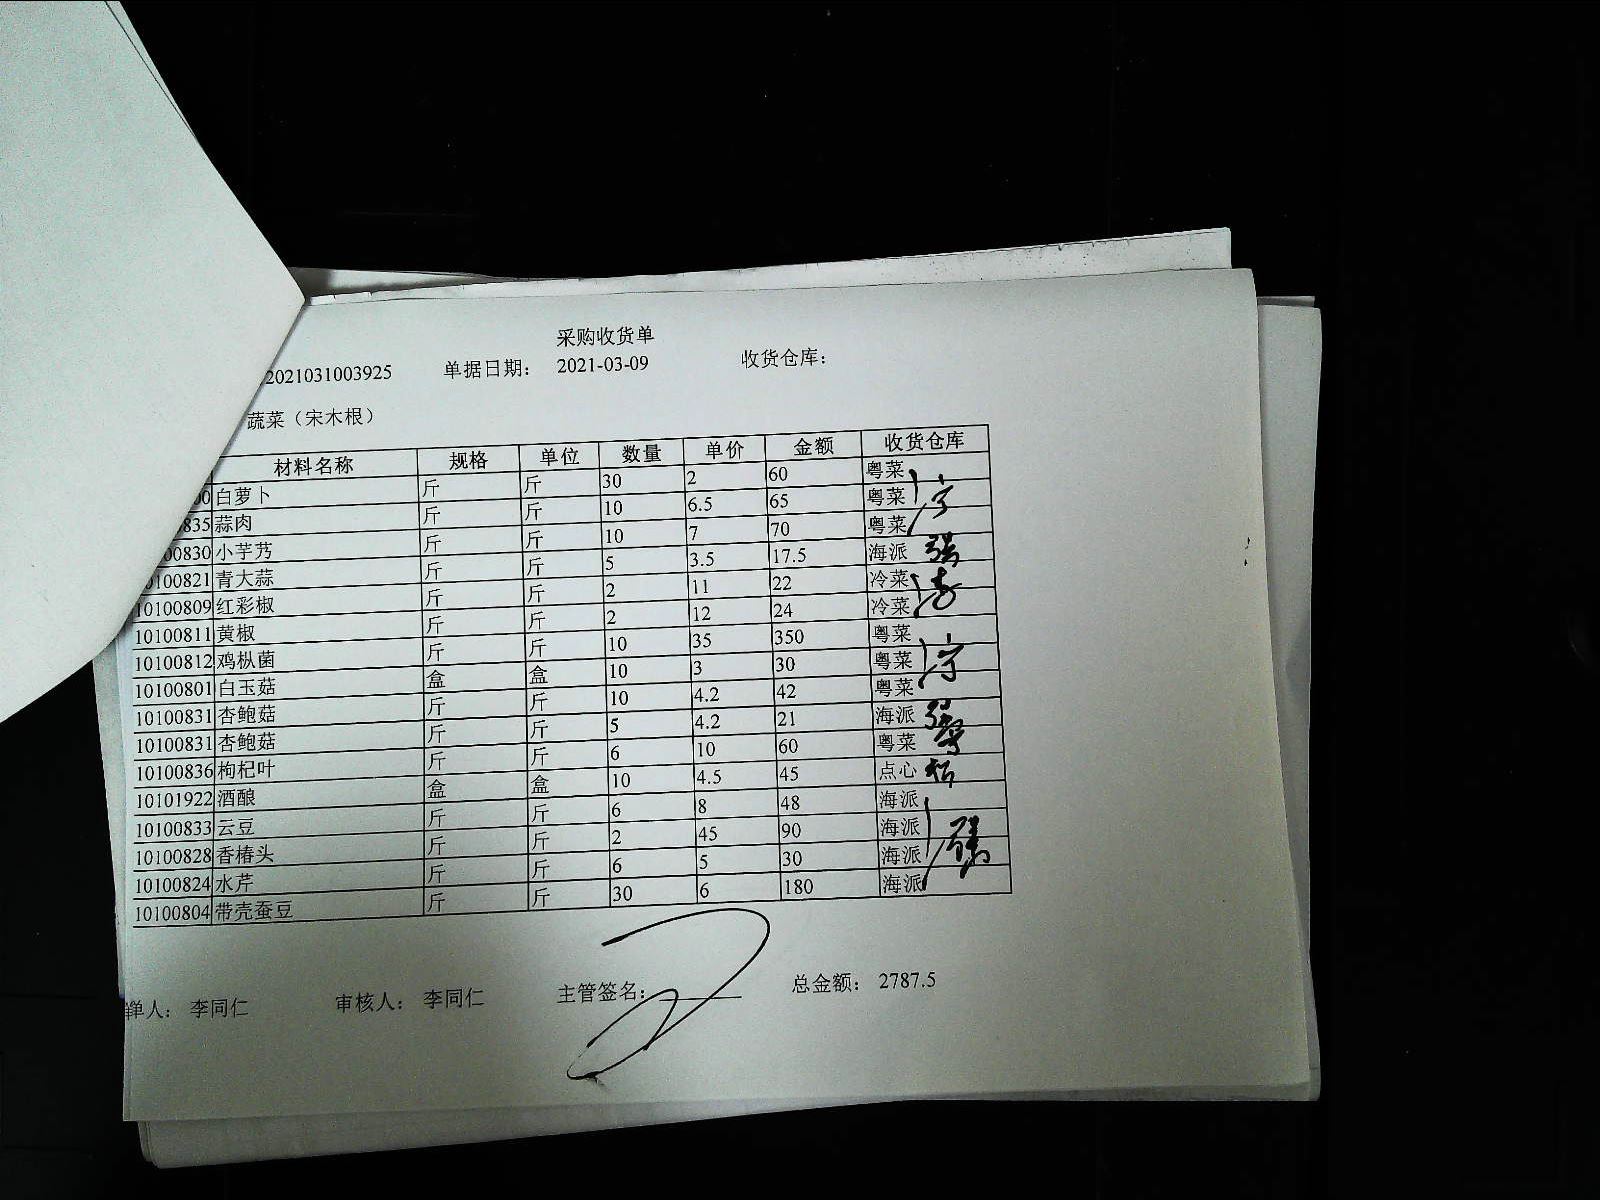 采购收货单
2021031003925 单据日期： 2021-03-09 收货仓库：
蔬菜（宋木根）
材料名称 规格 单位 数量 单价 金额 收货仓库
00 白萝卜 斤 斤 30 2 60 粤菜
835 蒜肉 斤 斤 10 6.5 65 粤菜
00830 小芋艿 斤 斤 10 7 70 粤菜
0100821 青大蒜 斤 斤 5 3.5 17.5 海派
10100809 红彩椒 斤 斤 2 11 22 冷菜
10100811 黄椒 斤 斤 2 12 24 冷菜
10100812 鸡枞菌 斤 斤 10 35 350 粤菜
10100801 白玉菇 盒 盒 10 3 30 粤菜
10100831 杏鲍菇 斤 斤 10 4.2 42 粤菜
10100831 杏鲍菇 斤 斤 5 4.2 21 海派
10100836 枸杞叶 斤 斤 6 10 60 粤菜
10101922 酒酿 盒 盒 10 4.5 45 点心
10100833 云豆 斤 斤 6 8 48 海派
10100828 香椿头 斤 斤 2 45 90 海派
10100824 水芹 斤 斤 6 5 30 海派
10100804 带壳蚕豆 斤 斤 30 6 180 海派
单人： 李同仁 审核人： 李同仁 主管签名： 总金额： 2787.5